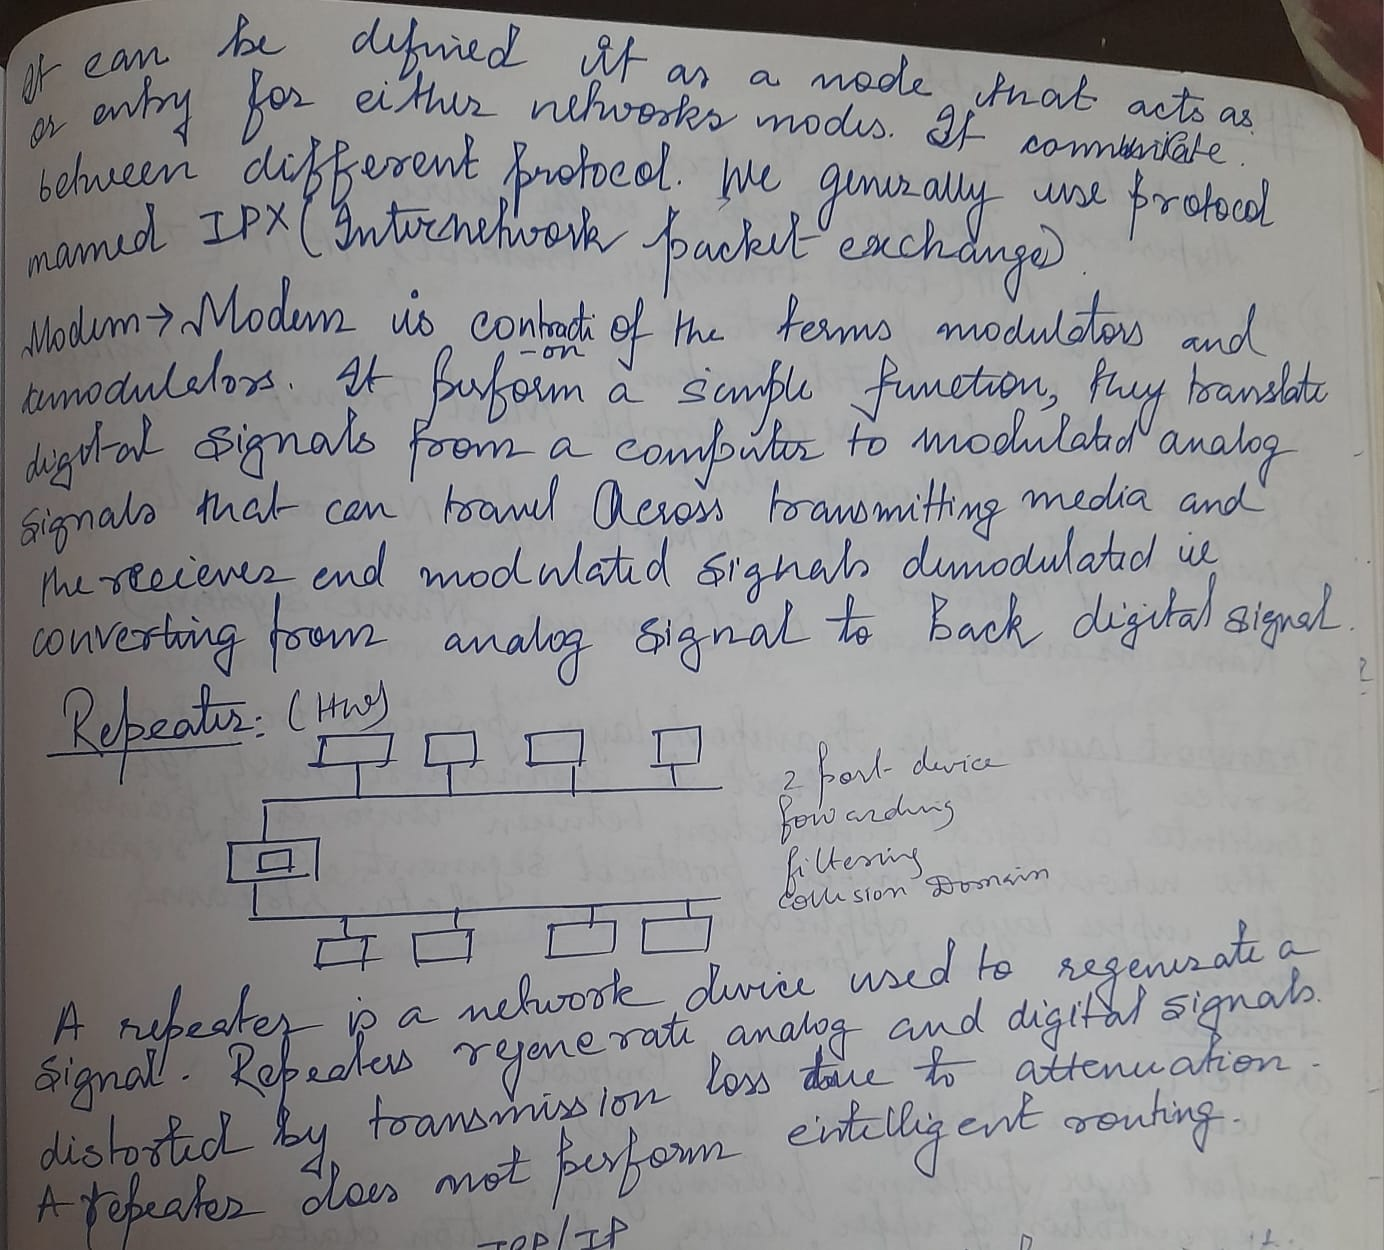 It can be defined it as a node that acts as
or entry for either networks modes. It communicate.
between different protocol. We generally use protocol
named IPX (Internetwork packet exchange).
Modem → Modem is contracti-on of the terms modulators and
demodulators. It perform a simple function, they translate
digital signals from a computer to modulated analog
signals that can travel Across transmitting media and
the reciever end modulated signals demodulated ie
converting from analog signal to Back digital signal.
Repeater: (HW)
2 port device
forwarding
filtering
collision Domain
A repeater is a network device used to regenerate a
signal. Repeaters regenerate analog and digital signals.
distorted by transmission loss due to attenuation.
A repeater does not perform intelligent routing.
TCP/IP